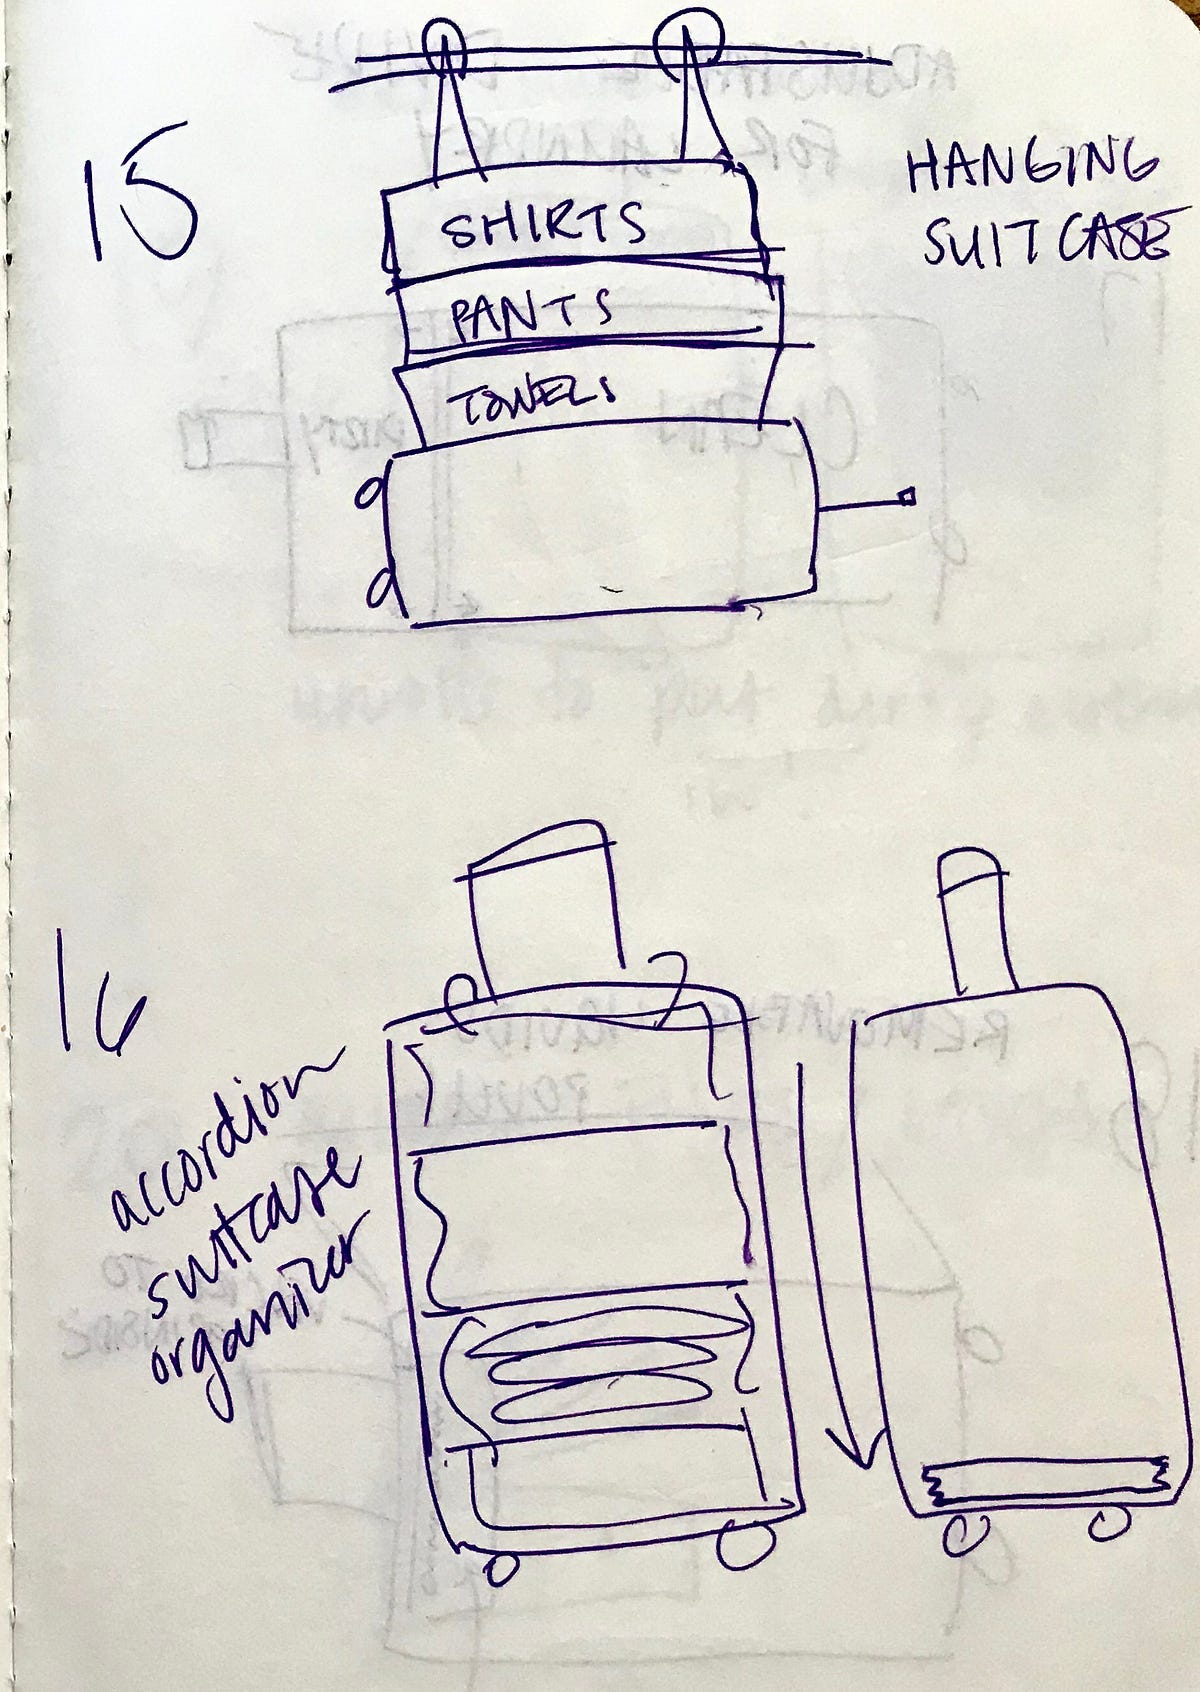 15
HANGING
SUITCASE
SHIRTS
PANTS
TOWELS
16
accordion
suitcase
organizer